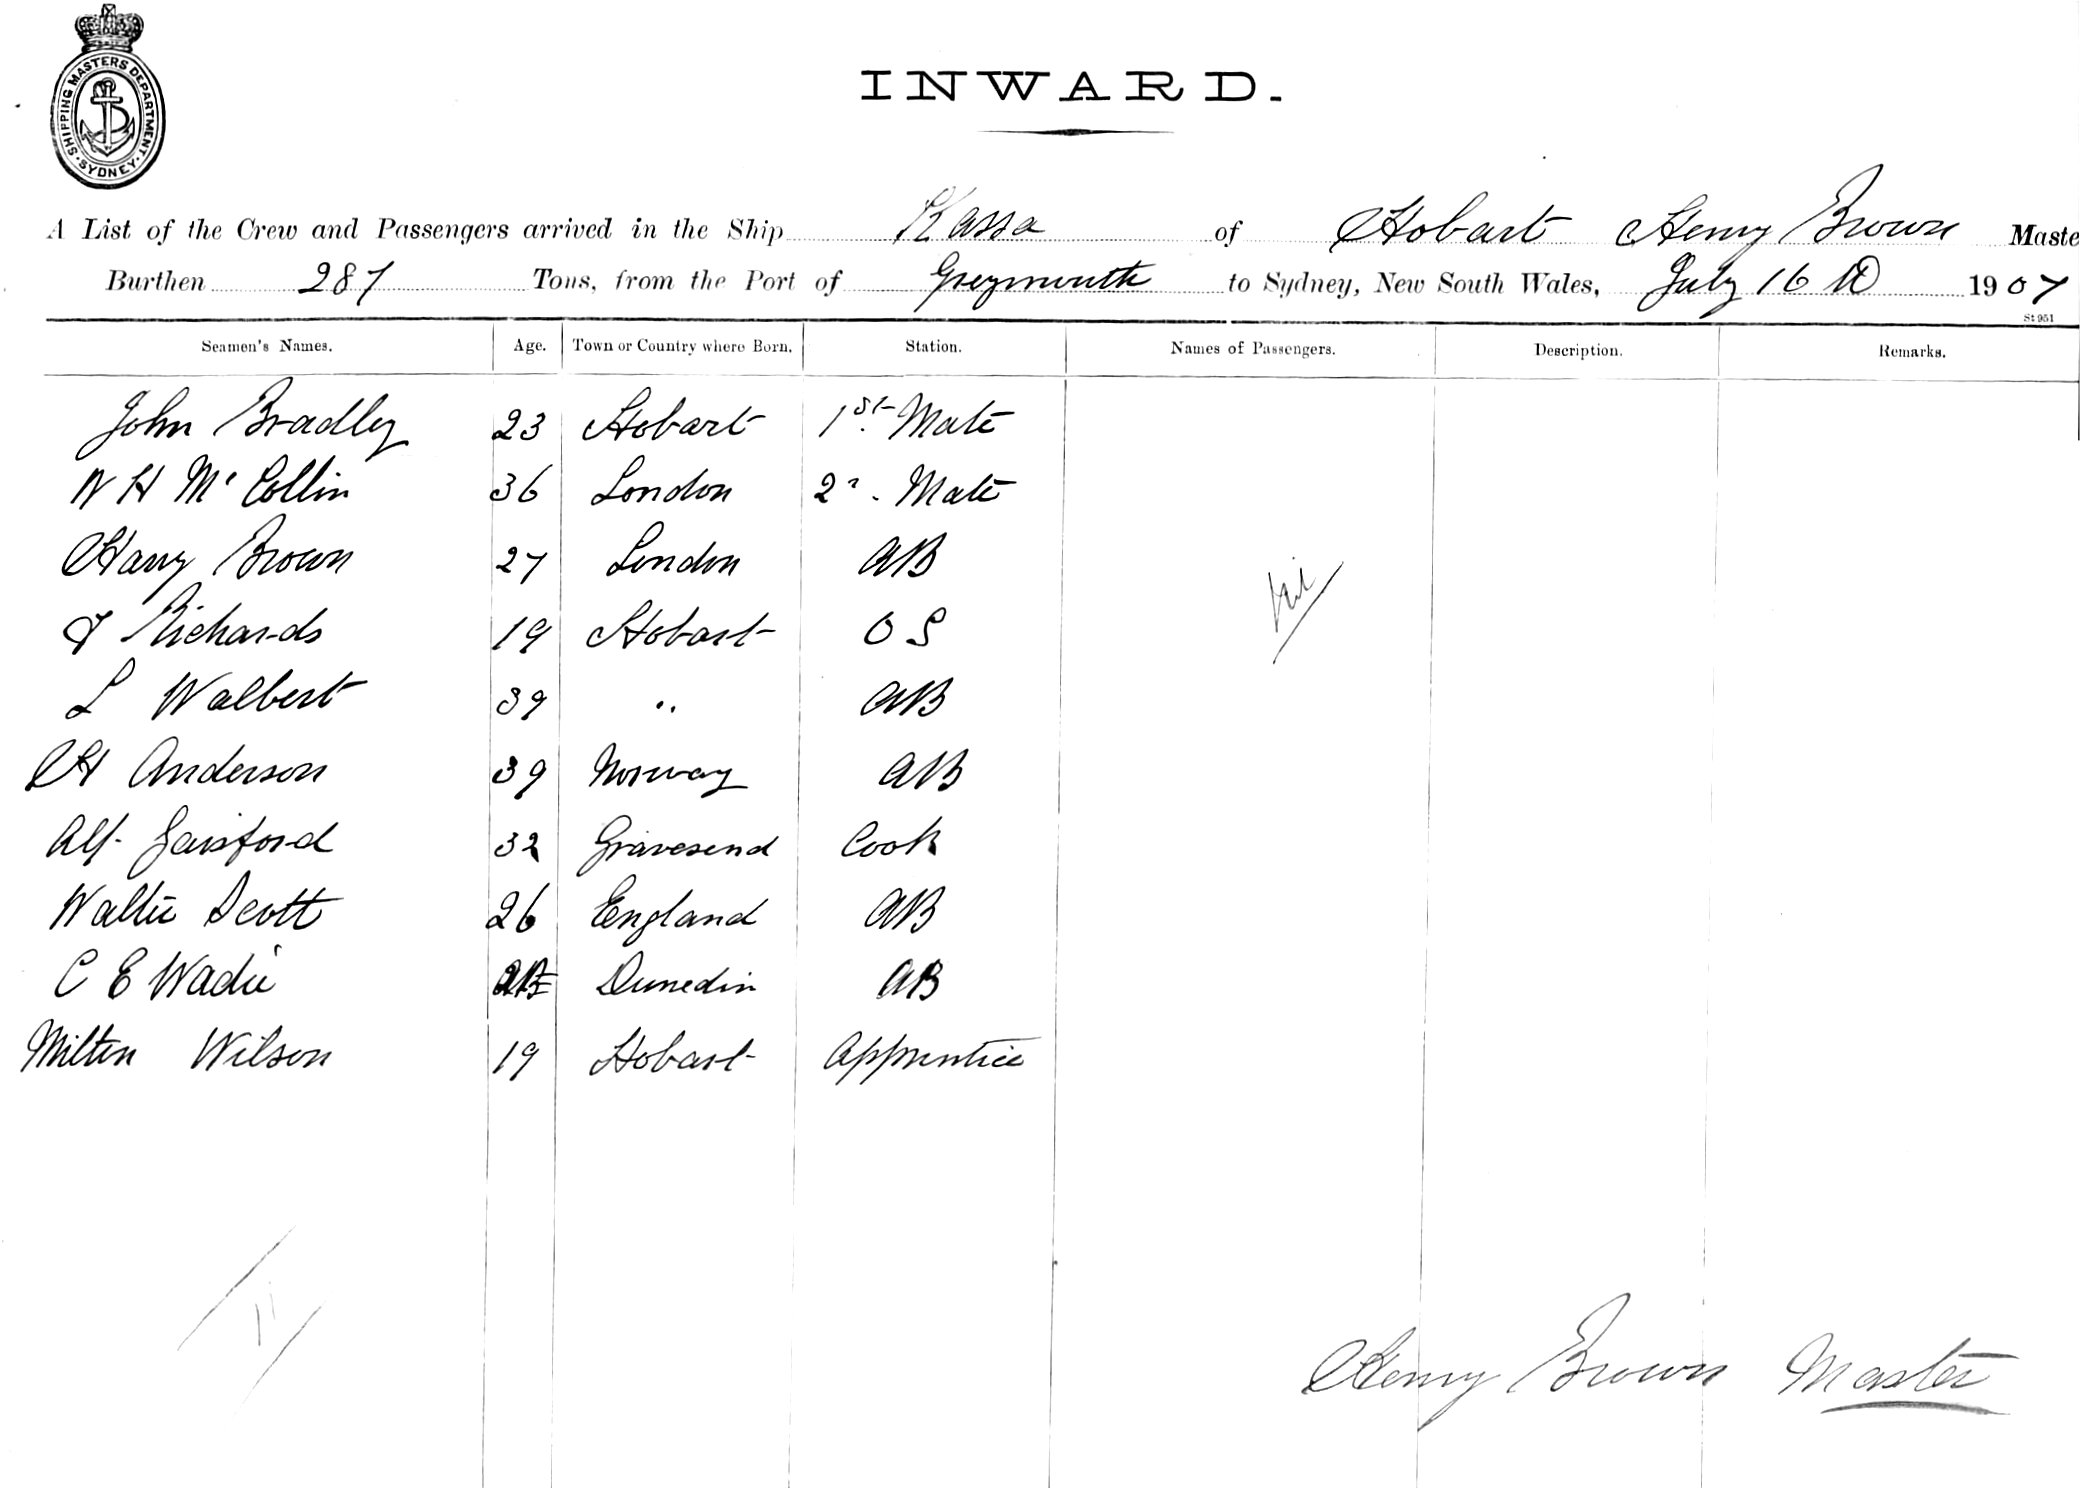 SHIPPING MASTERS DEPARTMENT. SYDNEY
INWARD.
A List of the Crew and Passengers arrived in the Ship Kassa of Hobart Henry Brown Maste
Burthen 287 Tons, from the Port of Greymouth to Sydney, New South Wales, July 16 1907
St 951
Seamen's Names. Age. Town or Country where Born. Station. Names of Passengers. Description. Remarks.
John Bradley 23 Hobart 1st Mate
W H Mc Collin 36 London 2n. Mate
Harry Brown 27 London AB
Nil
Richards 19 Hobart O S
L Walbert 39 " AB
H Anderson 39 Norway AB
Alf. Gaisford 32 Gravesend Cook
Walter Scott 26 England AB
C E Wadie Dunedin AB
Milton Wilson 19 Hobart Apprentice
11
Henry Brown Master